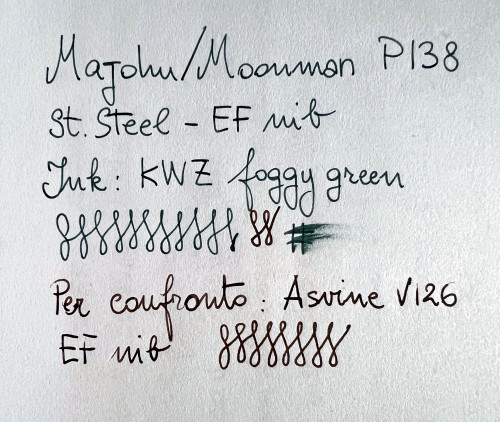 Majohn/Moonman P138
St. Steel - EF nib
Ink: KWZ foggy green
Per confronto: Asvine V126
EF nib